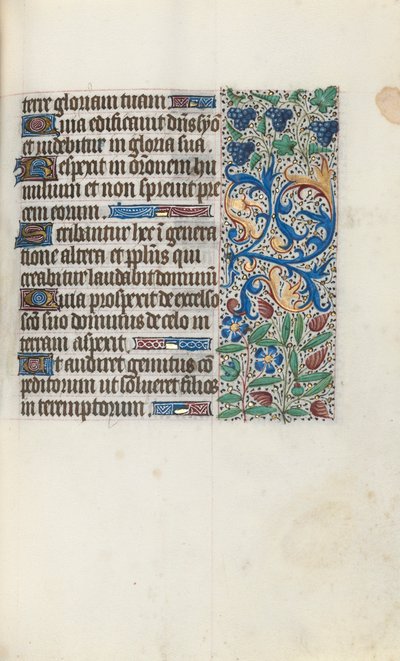 terre gloriam tuam
Quia edificauit dñs syo
et uidebitur in gloria sua
Respexit in orõnem hu
milium et non spreuit pre
cem eorum
Scribantur hec ĩ genera
tione altera et pplus qui
creabitur laudabit dominum
Quia prospexit de excelso
sco suo dominus de celo in
terram aspexit
Ut audiret gemitus co
peditorum ut solueret filios
interemptorum